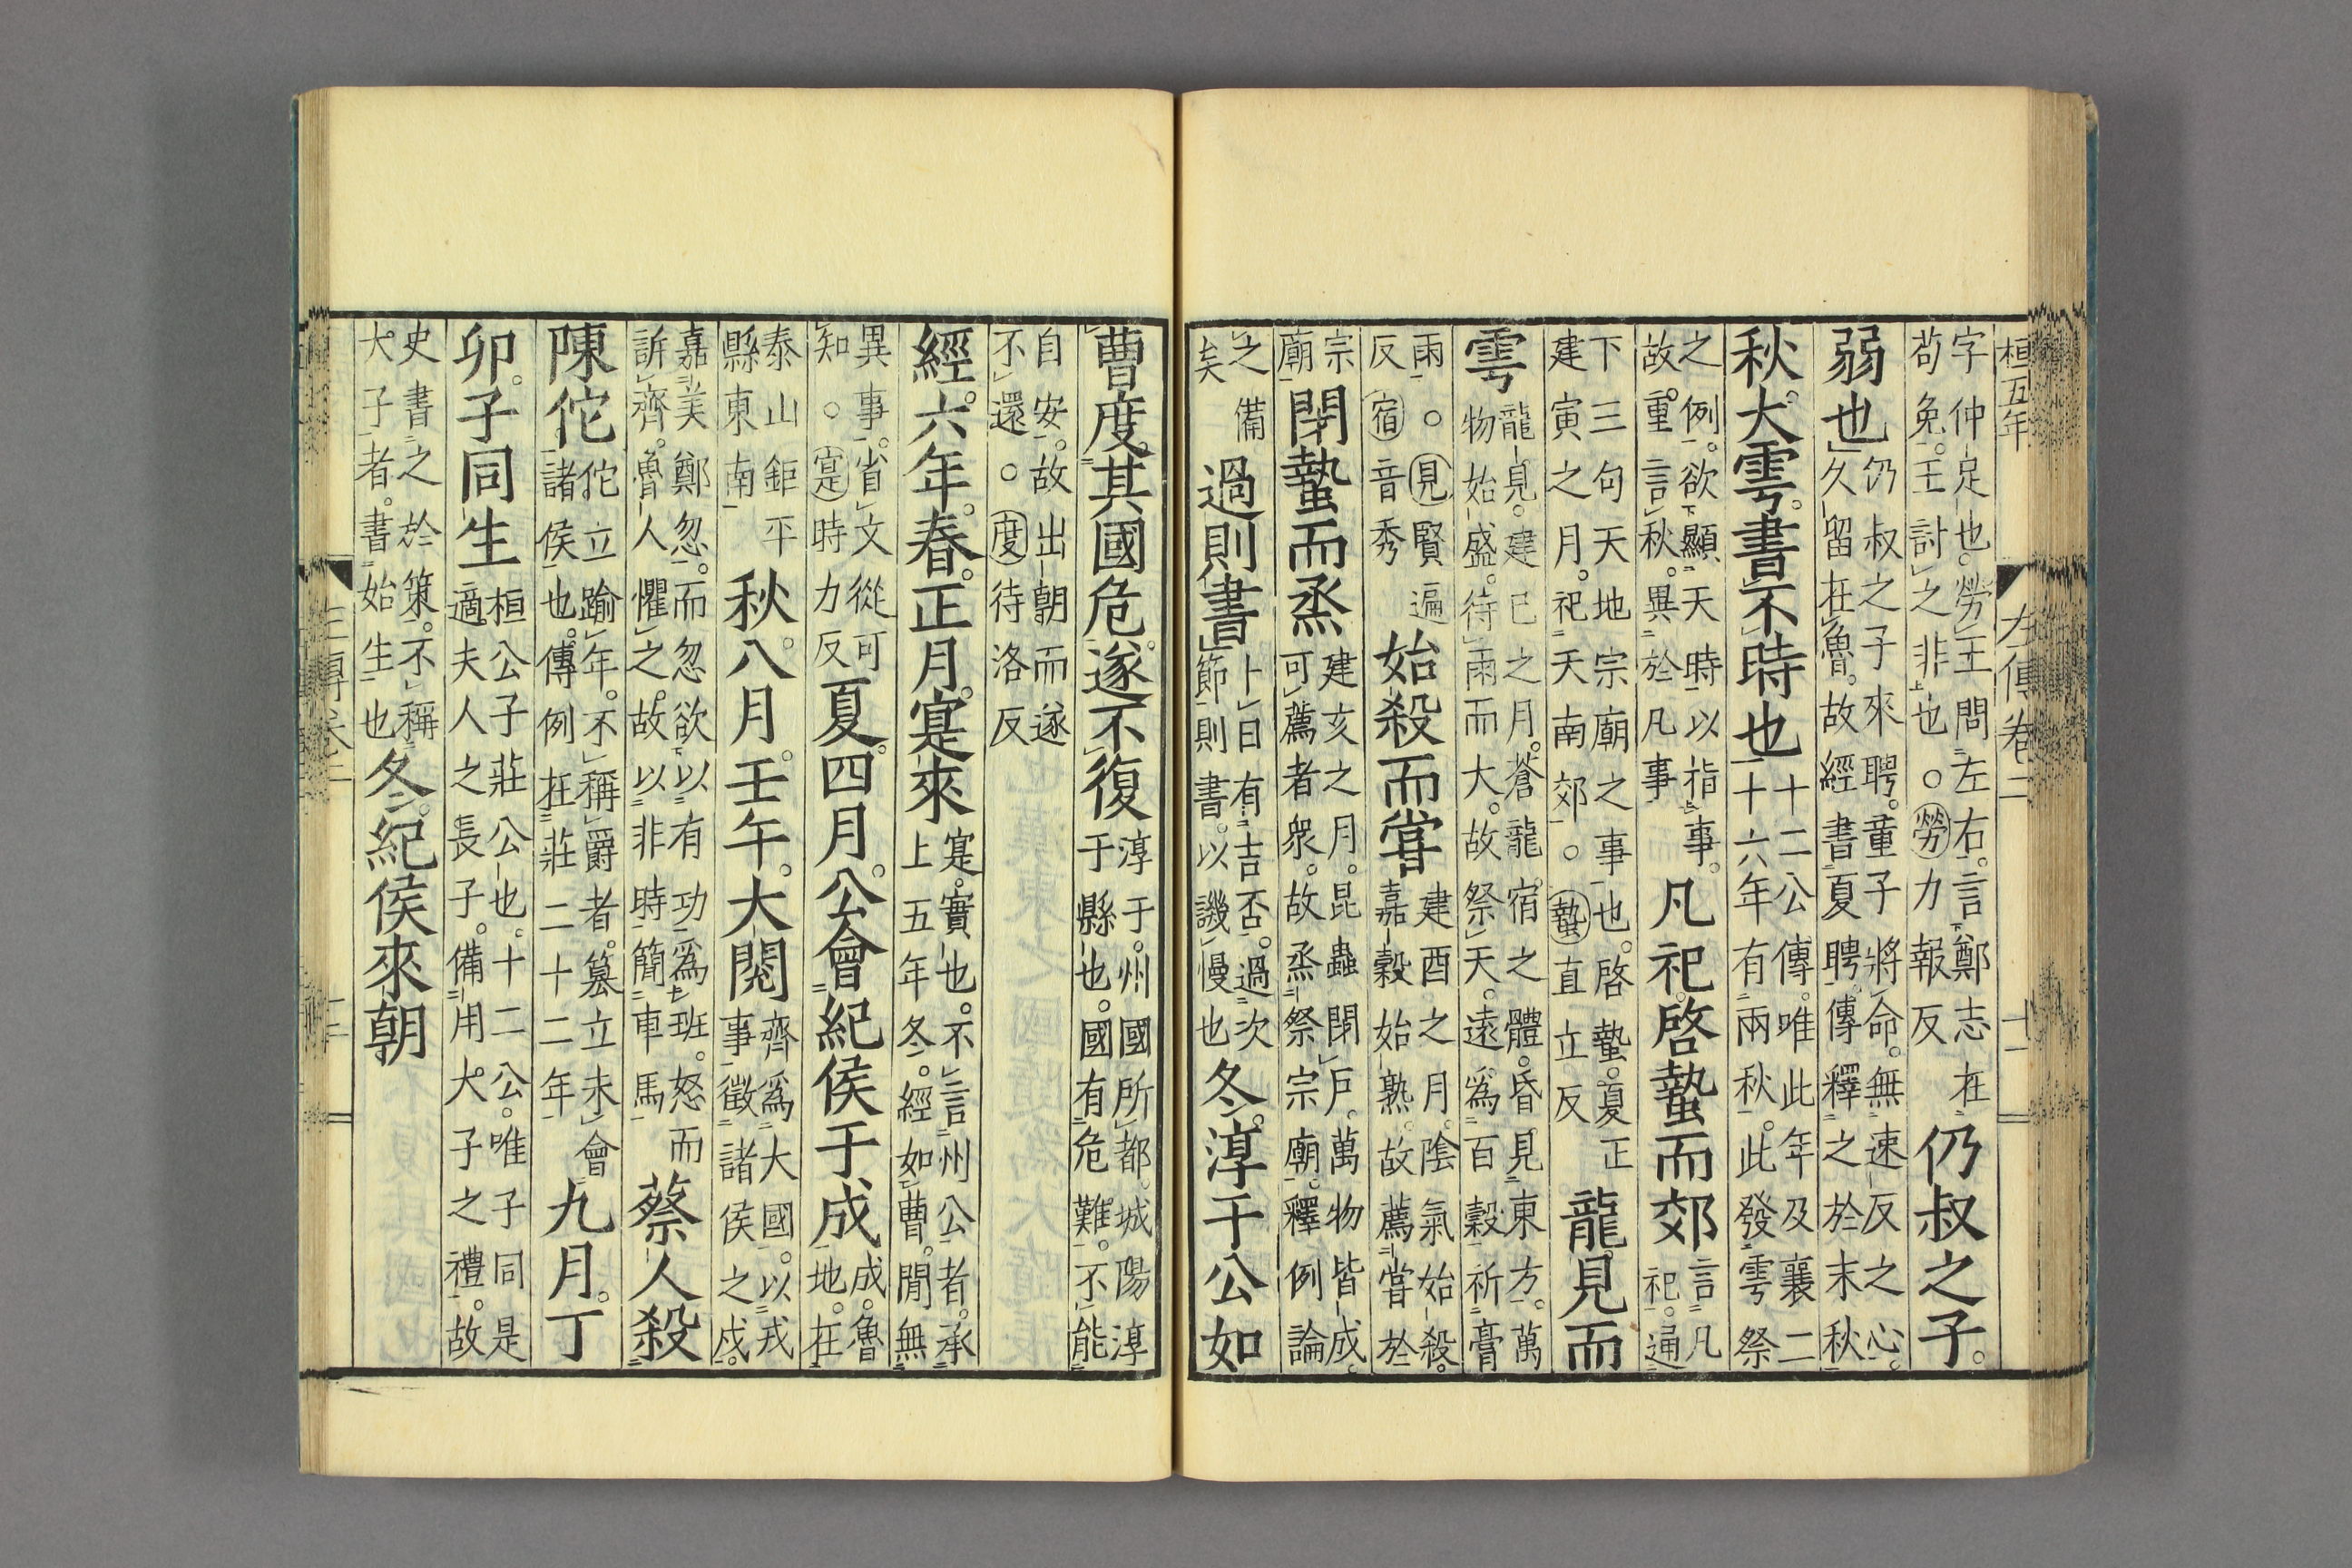 桓五年　左傳卷二　十一
字仲足也。勞王問左右。言鄭志在苟免。王討之非也。○勞力報反仍叔之子。
弱也仍叔之子來聘。童子將命。無速反之心。久留在魯。故經書夏聘。傳釋之於末秋
秋。大雩。書不時也十二公傳。唯此年及襄二十六年有兩秋。此發雩祭
之例。欲顯天時以指事。故。重言秋。異於凡事凡祀啓蟄而郊言凡祀。通
下三句天地宗廟之事也。啓蟄。夏正建寅之月。祀天南郊。○蟄直立反龍見而
雩龍見。建巳之月。蒼龍宿之體。昏見東方。萬物始盛。待雨而大。故祭天。遠爲百穀祈膏
雨。○見賢遍反宿音秀始殺而嘗建酉之月。陰氣始殺。嘉穀始熟。故薦嘗於
宗廟閉蟄而烝建亥之月。昆蟲閉戶。萬物皆成。可薦者衆。故烝祭宗廟。釋例論
之備矣過則書卜日有吉否。過次節則書。以譏慢也冬。淳于公如
曹度其國危。遂不復淳于。州國所都。城陽淳于縣也。國有危難。不能
自安。故出朝而遂不還。○度待洛反
經。六年。春。正月。寔來寔。實也。不言州公者。承上五年冬。經如曹。閒無
異事。省文從可知。○寔時力反夏。四月。公會紀侯于成成。魯地。在
泰山鉅平縣東南秋。八月。壬午。大閱齊爲大國。以戎事徵諸侯之戍。
嘉美鄭忽。而忽欲以有功爲班。怒而訴齊。魯人懼之。故以非時簡車馬蔡人殺
陳佗佗立踰年。不稱爵者。篡立未會諸侯也。傳例在莊二十二年九月。丁
卯。子同生桓公子莊公也。十二公。唯子同是適夫人之長子。備用大子之禮。故
史書之於策。不稱大子者。書始生也冬。紀侯來朝